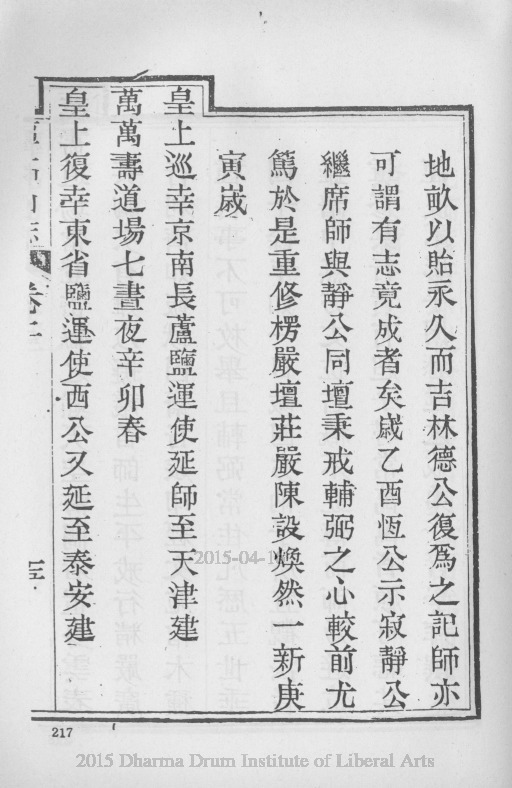 地畝以貽永久而吉林德公復爲之記師亦
可謂有志竟成者矣歲乙酉恆公示寂靜公
繼席師與靜公同壇秉戒輔弼之心較前尤
篤於是重修楞嚴壇莊嚴陳設煥然一新庚
寅歲
皇上巡幸京南長蘆鹽運使延師至天津建
萬萬壽道場七晝夜辛卯春
皇上復幸東省鹽運使西公又延至泰安建
卷二
217
2015-04-1
2015 Dharma Drum Institute of Liberal Arts